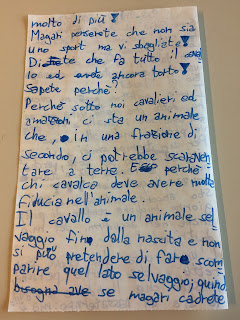 molto di più!
Magari penserete che non sia
uno sport ma vi sbagliate!
Direte che fa tutto il caval
lo ed ancora torto!
Sapete perché?
Perché sotto noi cavalieri ed
amazzoni ci sta un animale
che, in una frazione di
secondo, ci potrebbe scaraven
tare a terra. Ecco perché
chi cavalca deve avere molta
fiducia nell'animale.
Il cavallo è un animale sel
vaggio fin dalla nascita e non
si può pretendere di fare scom
parire quel lato selvaggio; quind
bisogna ave se magari cadrete